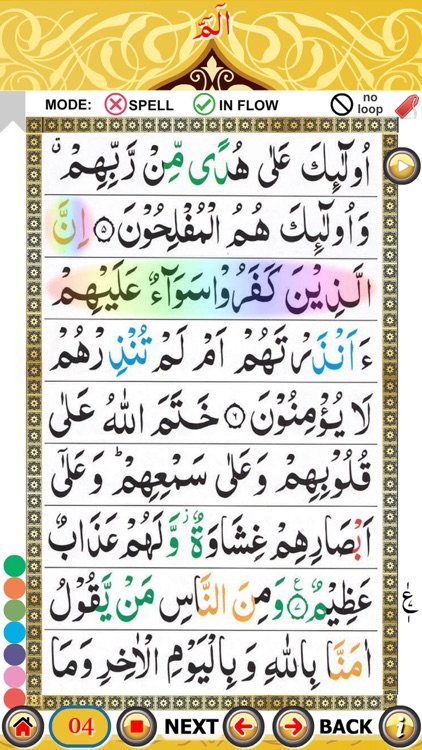 الٓمّٓ
MODE: SPELL IN FLOW no loop
اُولٰٓئِكَ عَلٰى هُدًى مِّنْ رَّبِّهِمْ ۙ
وَاُولٰٓئِكَ هُمُ الْمُفْلِحُوْنَ ۝۵ اِنَّ
الَّذِيْنَ كَفَرُوْا سَوَآءٌ عَلَيْهِمْ
ءَاَنْذَرْتَهُمْ اَمْ لَمْ تُنْذِرْهُمْ
لَا يُؤْمِنُوْنَ ۝۶ خَتَمَ اللّٰهُ عَلٰى
قُلُوْبِهِمْ وَعَلٰى سَمْعِهِمْ ؕ وَعَلٰٓى
اَبْصَارِهِمْ غِشَاوَةٌ ؗ وَّلَهُمْ عَذَابٌ
عَظِيْمٌ ۝۷ ع وَمِنَ النَّاسِ مَنْ يَّقُوْلُ
اٰمَنَّا بِاللّٰهِ وَبِالْيَوْمِ الْاٰخِرِ وَمَا
04 NEXT BACK i